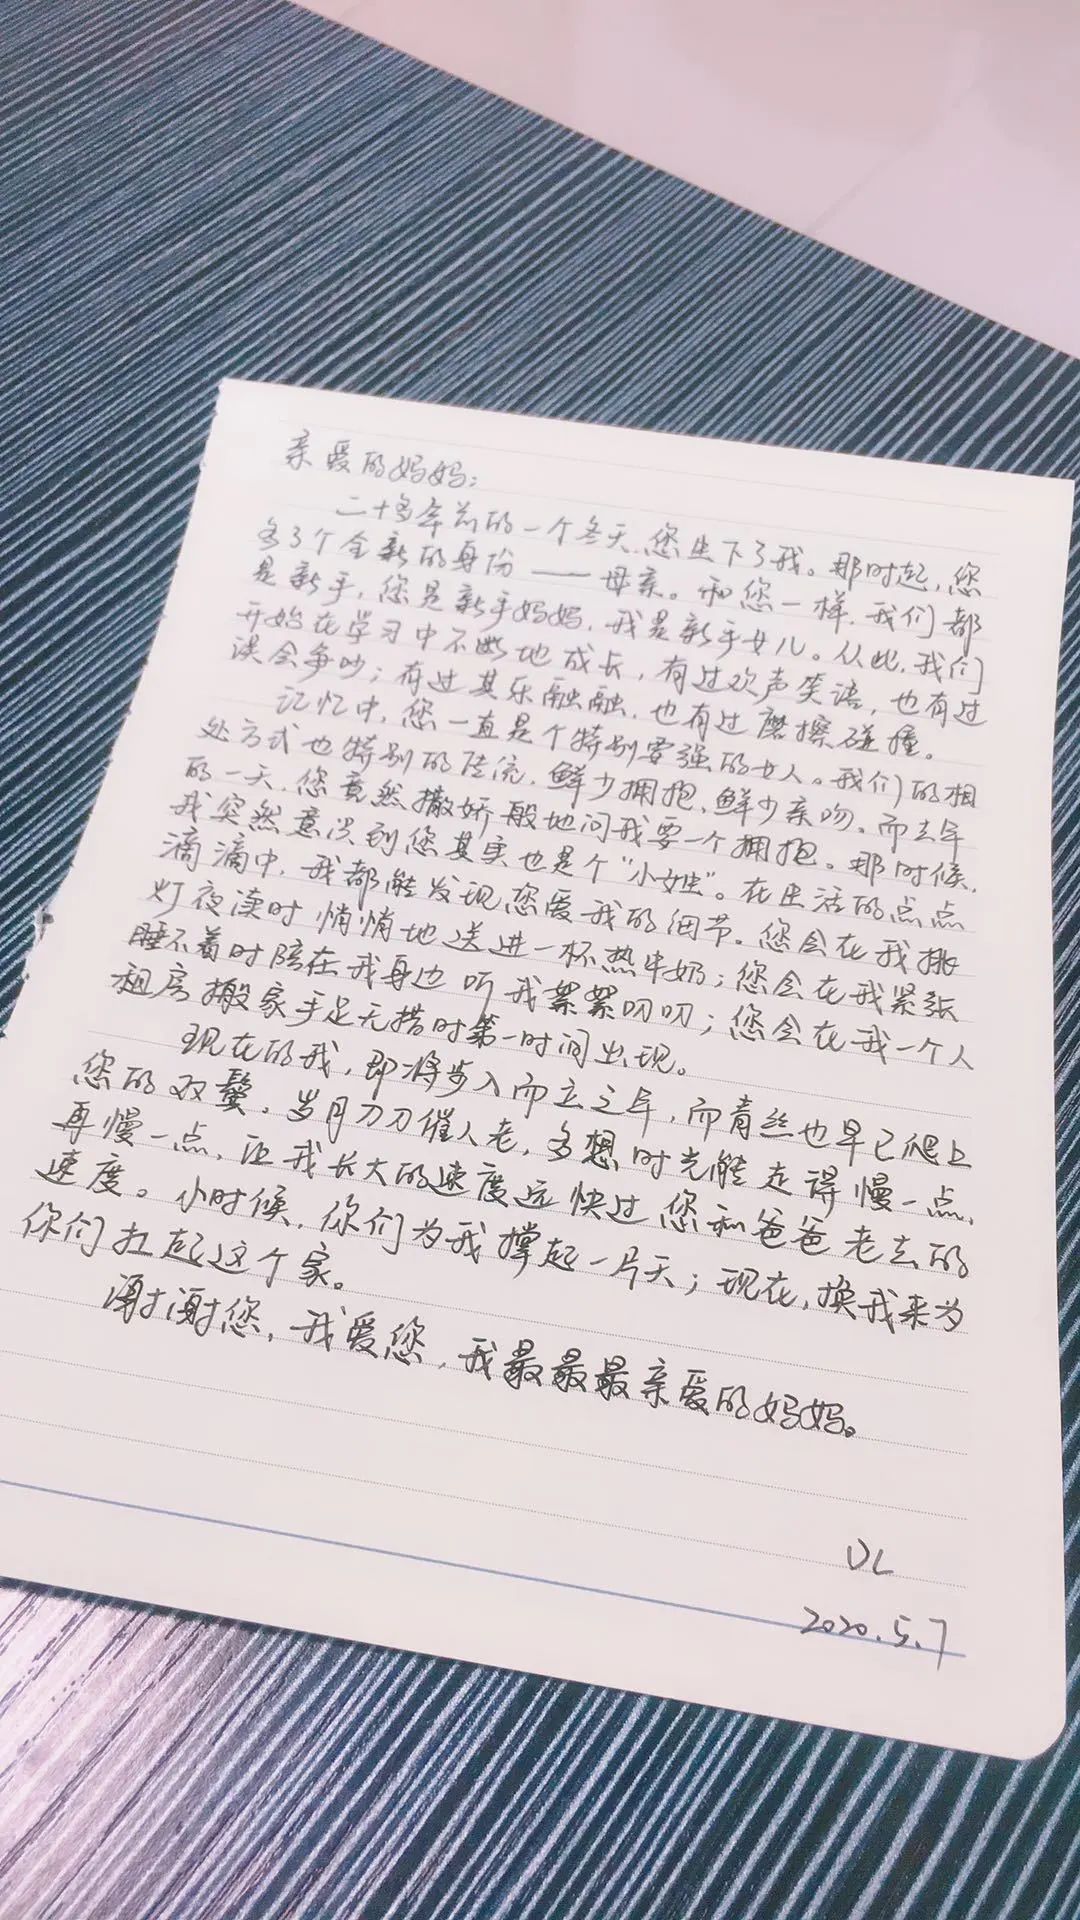 亲爱的妈妈：
二十多年前的一个冬天，您生下了我。那时起，您
多了个全新的身份——母亲。和您一样，我们都
是新手，您是新手妈妈，我是新手女儿。从此，我们
开始在学习中不断地成长，有过欢声笑语，也有过
误会争吵；有过其乐融融，也有过磨擦碰撞。
记忆中，您一直是个特别要强的女人。我们的相
处方式也特别的传统，鲜少拥抱，鲜少亲吻。而去年
的一天，您竟然撒娇般地问我要一个拥抱。那时候，
我突然意识到您其实也是个“小女生”。在生活的点点
滴滴中，我都能发现您爱我的细节。您会在我挑
灯夜读时悄悄地送进一杯热牛奶；您会在我紧张
睡不着时陪在我身边听我絮絮叨叨；您会在我一个人
租房搬家手足无措时第一时间出现。
现在的我，即将步入而立之年，而青丝也早已爬上
您的双鬓。岁月刀刀催人老，多想时光能走得慢一点，
再慢一点，让我长大的速度远快过您和爸爸老去的
速度。小时候，你们为我撑起一片天；现在，换我来为
你们扛起这个家。
谢谢您，我爱您，我最最最亲爱的妈妈。
DL
2020.5.7